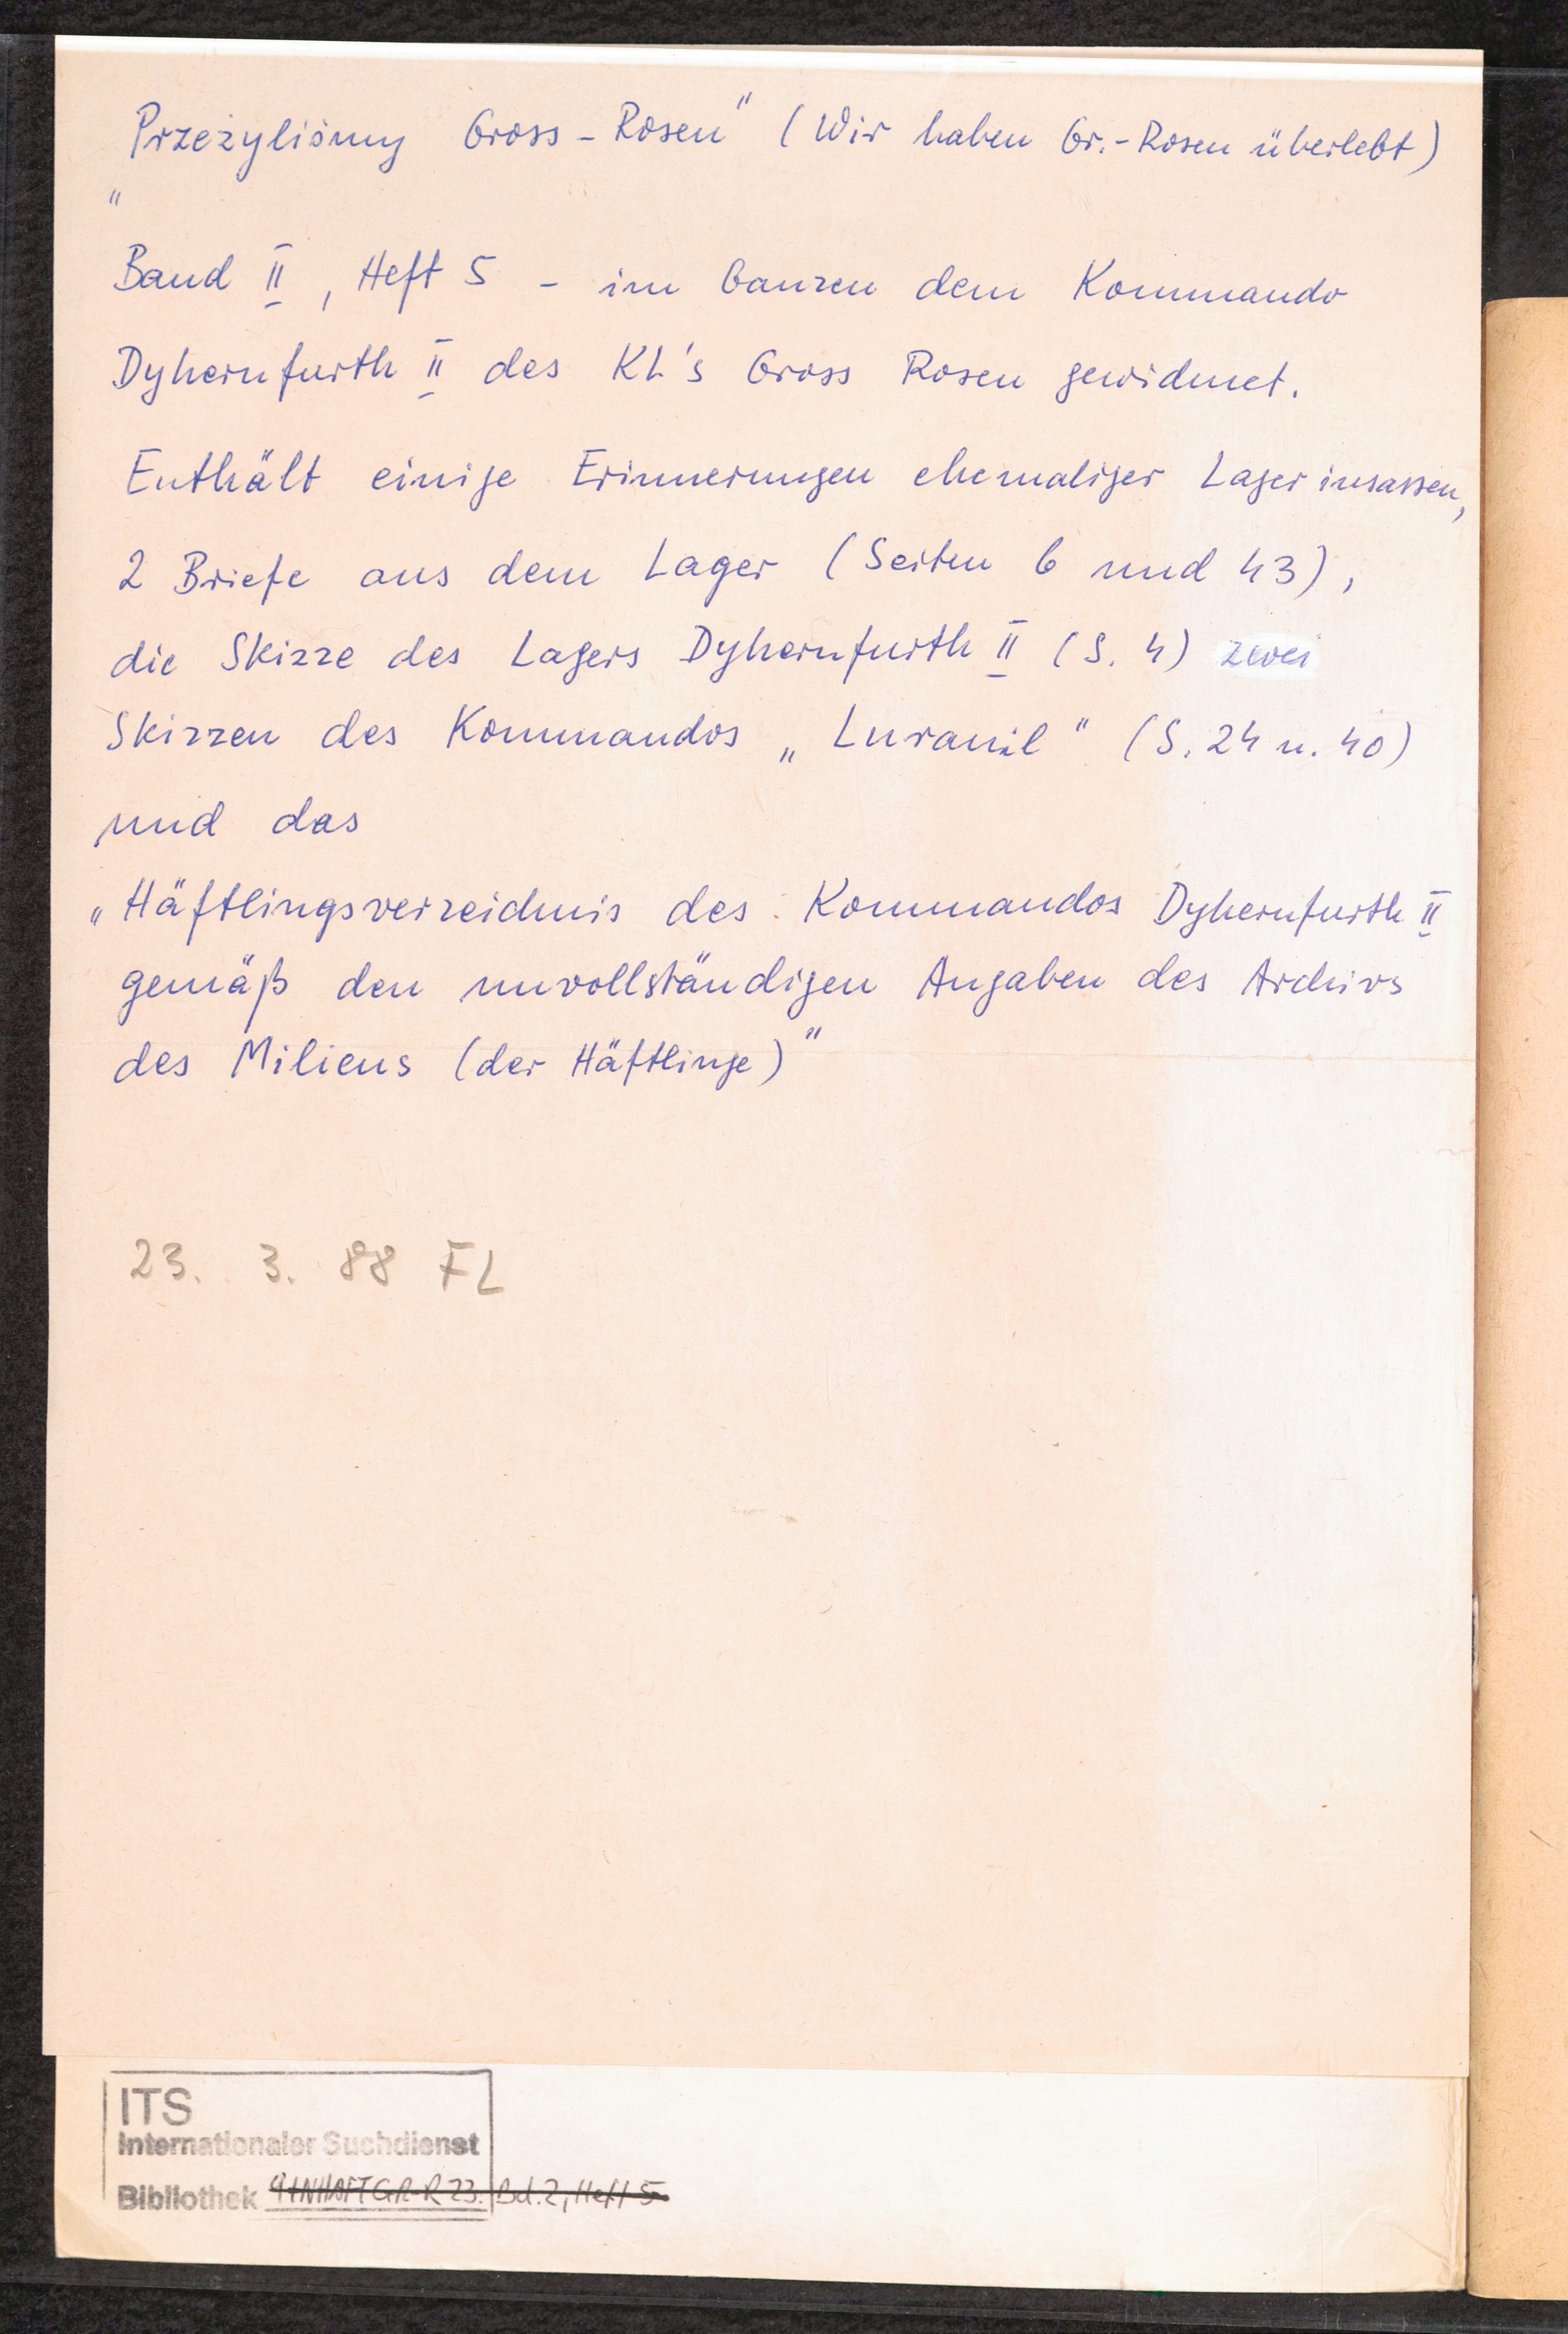 „Przeżyliśmy Gross-Rosen" (Wir haben Gr.-Rosen überlebt)
Band II, Heft 5 - im Ganzen dem Kommando
Dyhernfurth II des KL's Gross Rosen gewidmet.
Enthält einige Erinnerungen ehemaliger Lagerinsassen,
2 Briefe aus dem Lager (Seiten 6 und 43),
die Skizze des Lagers Dyhernfurth II (S. 4) zwei
Skizzen des Kommandos „Luranil" (S. 24 u. 40)
und das
„Häftlingsverzeichnis des Kommandos Dyhernfurth II
gemäß den unvollständigen Angaben des Archivs
des Milieus (der Häftlinge)"
23. 3. 88 FL
ITS
Internationaler Suchdienst
Bibliothek Bd. 2, Heft 5